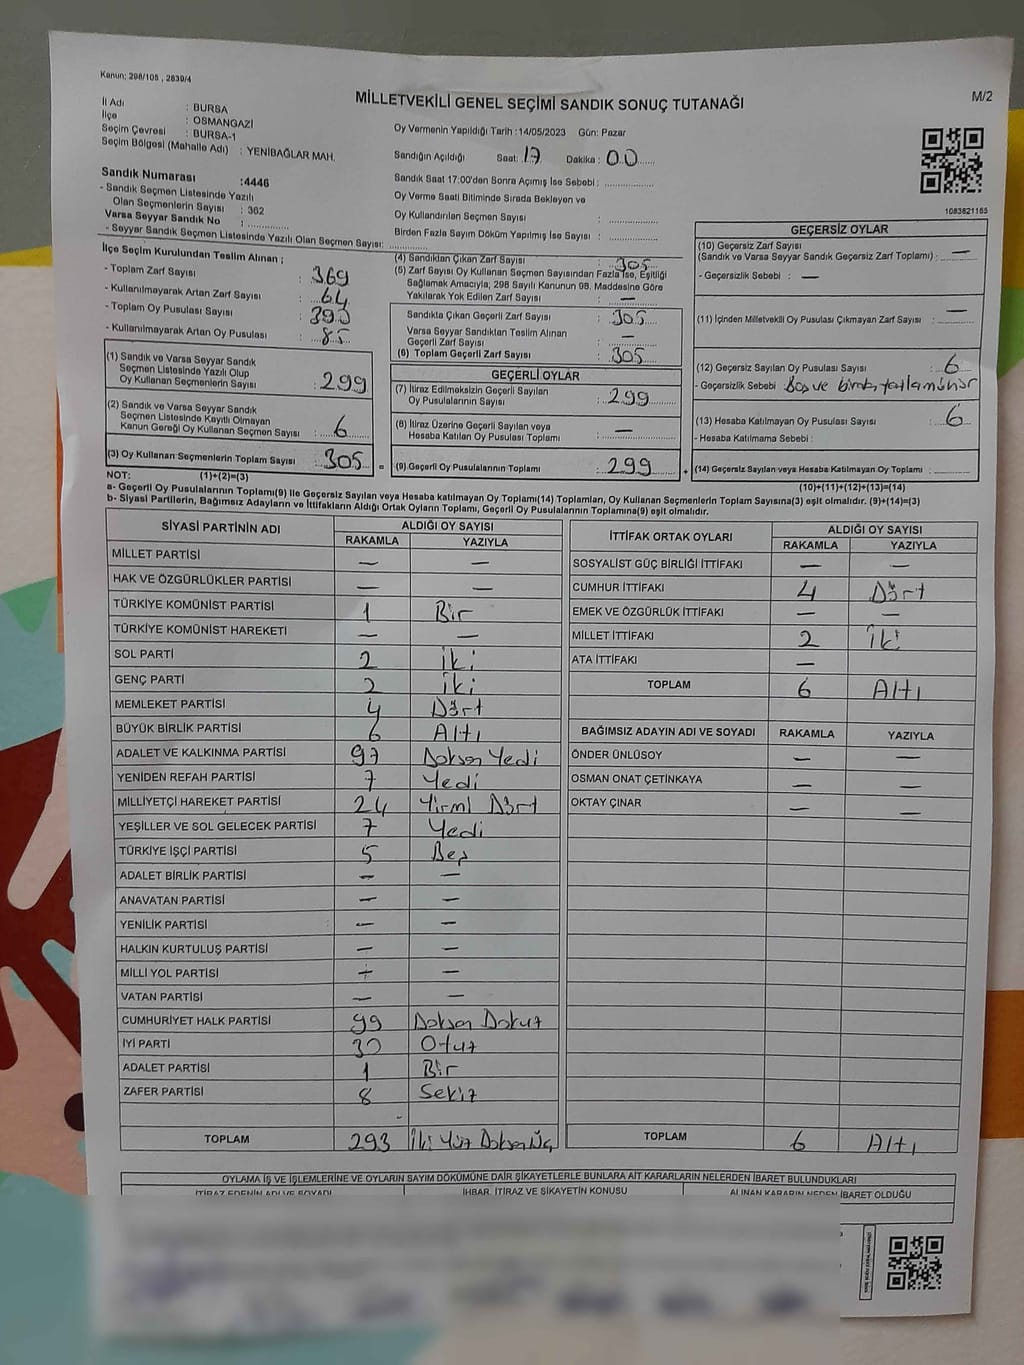 Kanun: 298/105 , 2839/4
MİLLETVEKİLİ GENEL SEÇİMİ SANDIK SONUÇ TUTANAĞI
M/2
İl Adı : BURSA
İlçe : OSMANGAZİ
Seçim Çevresi : BURSA-1
Seçim Bölgesi (Mahalle Adı) : YENİBAĞLAR MAH.
Sandık Numarası :4446
- Sandık Seçmen Listesinde Yazılı
Olan Seçmenlerin Sayısı : 362
Varsa Seyyar Sandık No : ..............
- Seyyar Sandık Seçmen Listesinde Yazılı Olan Seçmen Sayısı: ..............
Oy Vermenin Yapıldığı Tarih : 14/05/2023 Gün: Pazar
Sandığın Açıldığı Saat: 17 Dakika : 00
Sandık Saat 17:00'den Sonra Açımış İse Sebebi : ..................
Oy Verme Saati Bitiminde Sırada Bekleyen ve
Oy Kullandırılan Seçmen Sayısı : ..................
Birden Fazla Sayım Döküm Yapılmış İse Sayısı : ..................
1083821155
İlçe Seçim Kurulundan Teslim Alınan ;
- Toplam Zarf Sayısı : 369
- Kullanılmayarak Artan Zarf Sayısı : 64
- Toplam Oy Pusulası Sayısı : 390
- Kullanılmayarak Artan Oy Pusulası : 85
(1) Sandık ve Varsa Seyyar Sandık
Seçmen Listesinde Yazılı Olup
Oy Kullanan Seçmenlerin Sayısı : 299
(2) Sandık ve Varsa Seyyar Sandık
Seçmen Listesinde Kayıtlı Olmayan
Kanun Gereği Oy Kullanan Seçmen Sayısı : 6
(3) Oy Kullanan Seçmenlerin Toplam Sayısı : 305 =
(4) Sandıktan Çıkan Zarf Sayısı : 305
(5) Zarf Sayısı Oy Kullanan Seçmen Sayısından Fazla İse, Eşitliği
Sağlamak Amacıyla, 298 Sayılı Kanunun 98. Maddesine Göre
Yakılarak Yok Edilen Zarf Sayısı : —
Sandıkta Çıkan Geçerli Zarf Sayısı : 305
Varsa Seyyar Sandıktan Teslim Alınan
Geçerli Zarf Sayısı : —
(6) Toplam Geçerli Zarf Sayısı : 305
GEÇERLİ OYLAR
(7) İtiraz Edilmeksizin Geçerli Sayılan
Oy Pusulalarının Sayısı : 299
(8) İtiraz Üzerine Geçerli Sayılan veya
Hesaba Katılan Oy Pusulası Toplamı : —
(9) Geçerli Oy Pusulalarının Toplamı : 299 +
GEÇERSİZ OYLAR
(10) Geçersiz Zarf Sayısı
(Sandık ve Varsa Seyyar Sandık Geçersiz Zarf Toplamı) : —
- Geçersizlik Sebebi : —
(11) İçinden Milletvekili Oy Pusulası Çıkmayan Zarf Sayısı : —
(12) Geçersiz Sayılan Oy Pusulası Sayısı : 6
- Geçersizlik Sebebi : Boş ve
(13) Hesaba Katılmayan Oy Pusulası Sayısı : 6
- Hesaba Katılmama Sebebi :
(14) Geçersiz Sayılan veya Hesaba Katılmayan Oy Toplamı : ..........
NOT: (1)+(2)=(3)
(10)+(11)+(12)+(13)=(14)
a- Geçerli Oy Pusulalarının Toplamı(9) ile Geçersiz Sayılan veya Hesaba katılmayan Oy Toplamı(14) Toplamları, Oy Kullanan Seçmenlerin Toplam Sayısına(3) eşit olmalıdır. (9)+(14)=(3)
b- Siyasi Partilerin, Bağımsız Adayların ve İttifakların Aldığı Ortak Oyların Toplamı, Geçerli Oy Pusulalarının Toplamına(9) eşit olmalıdır.
SİYASİ PARTİNİN ADI ALDIĞI OY SAYISI
RAKAMLA YAZIYLA
MİLLET PARTİSİ — —
HAK VE ÖZGÜRLÜKLER PARTİSİ — —
TÜRKİYE KOMÜNİST PARTİSİ 1 Bir
TÜRKİYE KOMÜNİST HAREKETİ — —
SOL PARTİ 2 İki
GENÇ PARTİ 2 İki
MEMLEKET PARTİSİ 4 Dört
BÜYÜK BİRLİK PARTİSİ 6 Altı
ADALET VE KALKINMA PARTİSİ 97 Doksan Yedi
YENİDEN REFAH PARTİSİ 7 Yedi
MİLLİYETÇİ HAREKET PARTİSİ 24 Yirmi Dört
YEŞİLLER VE SOL GELECEK PARTİSİ 7 Yedi
TÜRKİYE İŞÇİ PARTİSİ 5 Beş
ADALET BİRLİK PARTİSİ — —
ANAVATAN PARTİSİ — —
YENİLİK PARTİSİ — —
HALKIN KURTULUŞ PARTİSİ — —
MİLLİ YOL PARTİSİ — —
VATAN PARTİSİ — —
CUMHURİYET HALK PARTİSİ 99 Doksan Dokuz
İYİ PARTİ 30 Otuz
ADALET PARTİSİ 1 Bir
ZAFER PARTİSİ 8 Sekiz
TOPLAM 293 İki Yüz Doksan Üç
İTTİFAK ORTAK OYLARI ALDIĞI OY SAYISI
RAKAMLA YAZIYLA
SOSYALİST GÜÇ BİRLİĞİ İTTİFAKI — —
CUMHUR İTTİFAKI 4 Dört
EMEK VE ÖZGÜRLÜK İTTİFAKI — —
MİLLET İTTİFAKI 2 İki
ATA İTTİFAKI —
TOPLAM 6 Altı
BAĞIMSIZ ADAYIN ADI VE SOYADI RAKAMLA YAZIYLA
ÖNDER ÜNLÜSOY — —
OSMAN ONAT ÇETİNKAYA — —
OKTAY ÇINAR — —
TOPLAM 6 Altı
OYLAMA İŞ VE İŞLEMLERİNE VE OYLARIN SAYIM DÖKÜMÜNE DAİR ŞİKAYETLERLE BUNLARA AİT KARARLARIN NELERDEN İBARET BULUNDUKLARI
İTİRAZ EDENİN ADI VE SOYADI İHBAR, İTİRAZ VE ŞİKAYETİN KONUSU ALINAN KARARIN NEDEN İBARET OLDUĞU